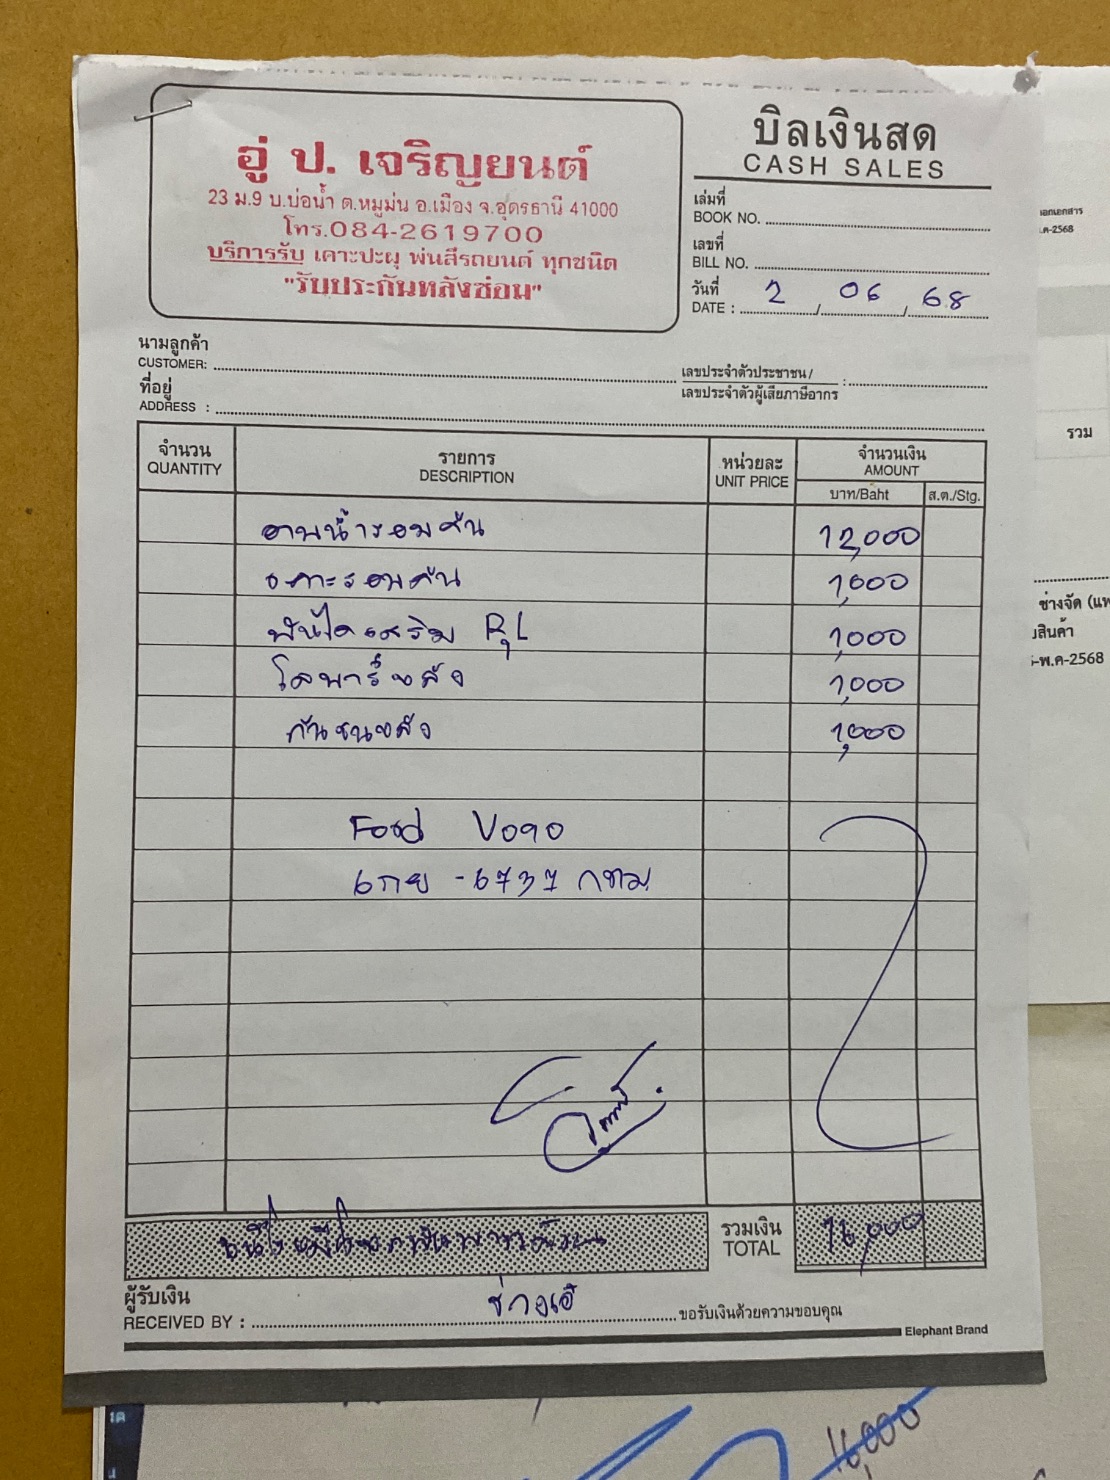 อู่ ป. เจริญยนต์
23 ม.9 บ.บ่อน้ำ ต.หมูม่น อ.เมือง จ.อุดรธานี 41000
โทร.084-2619700
บริการรับ เคาะปะผุ พ่นสีรถยนต์ ทุกชนิด
"รับประกันหลังซ่อม"
บิลเงินสด
CASH SALES
เล่มที่
BOOK NO.
เลขที่
BILL NO.
วันที่
DATE : 2 / 06 / 68
นามลูกค้า
CUSTOMER:
เลขประจำตัวประชาชน/
เลขประจำตัวผู้เสียภาษีอากร :
ที่อยู่
ADDRESS :
จำนวน
QUANTITY
รายการ
DESCRIPTION
หน่วยละ
UNIT PRICE
จำนวนเงิน
AMOUNT
บาท/Baht
ส.ต./Stg.
รอบคัน 12,000
เคาะรอบคัน 1,000
บันไดเสริม R,L 1,000
โลบาร์หลัง 1,000
กันชนหลัง 1,000
Ford
6กย - 6737 กทม
รวมเงิน
TOTAL
16,000
ผู้รับเงิน
RECEIVED BY : ช่างเอ๋
ขอรับเงินด้วยความขอบคุณ
Elephant Brand
รวม
ช่างจัด
สินค้า
พ.ค-2568
16,000